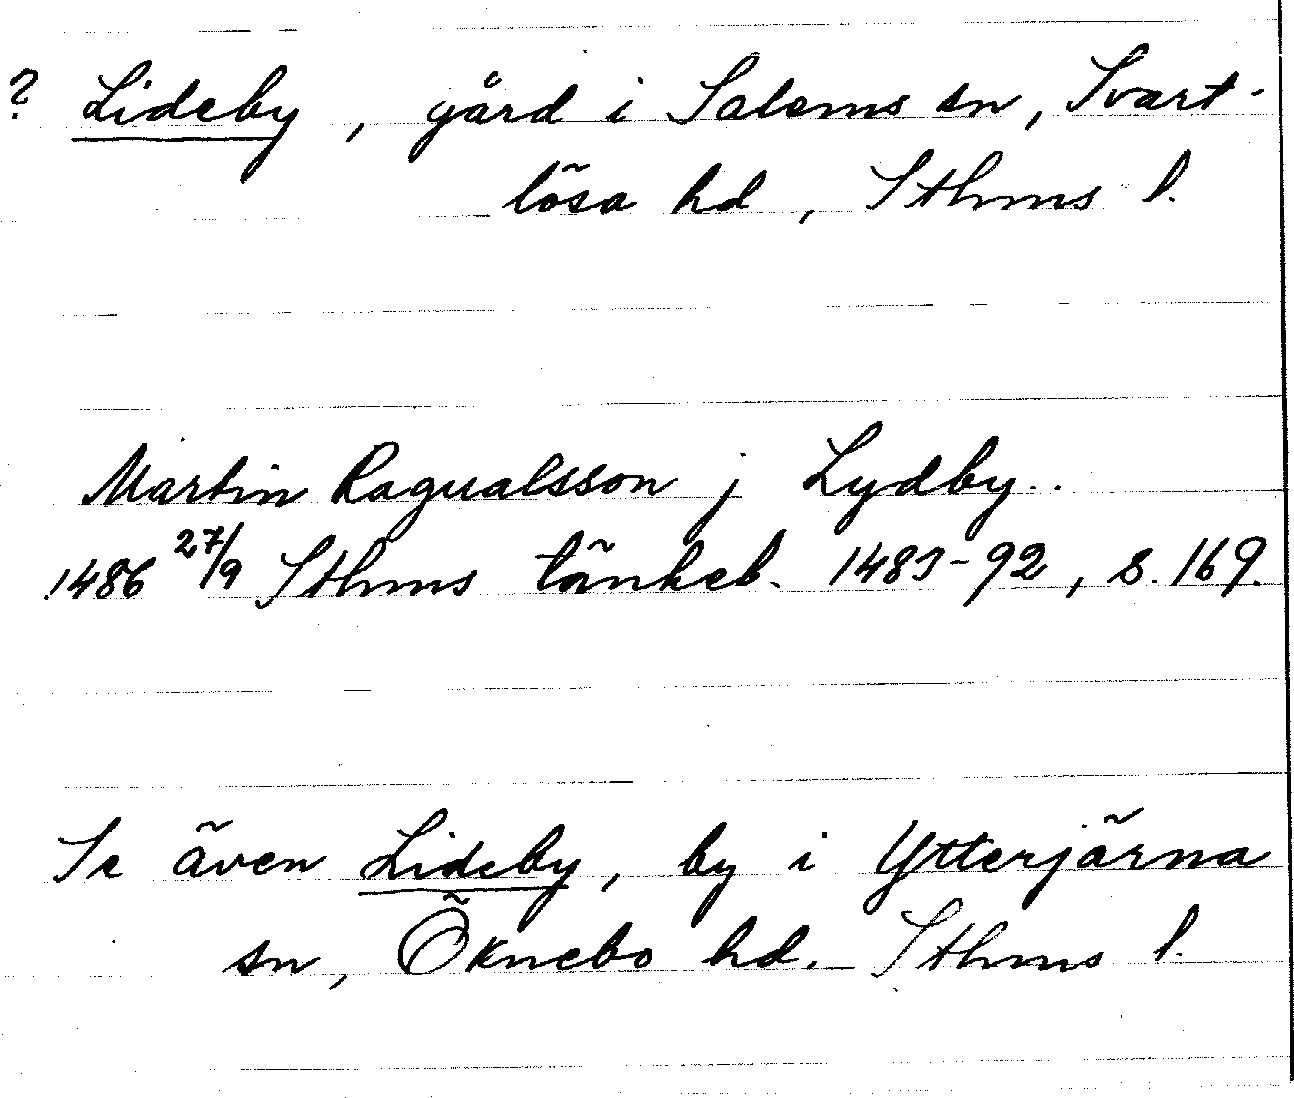 ? Lideby, gård i Salems sn, Svart-
lösa hd, Sthms l.
Martin Ragualsson j Lydby..
1486 27/9 Sthms tänkeb. 1483-92, s. 169.
Se även Lideby, by i Ytterjärna
sn, Öknebo hd. Sthms l.